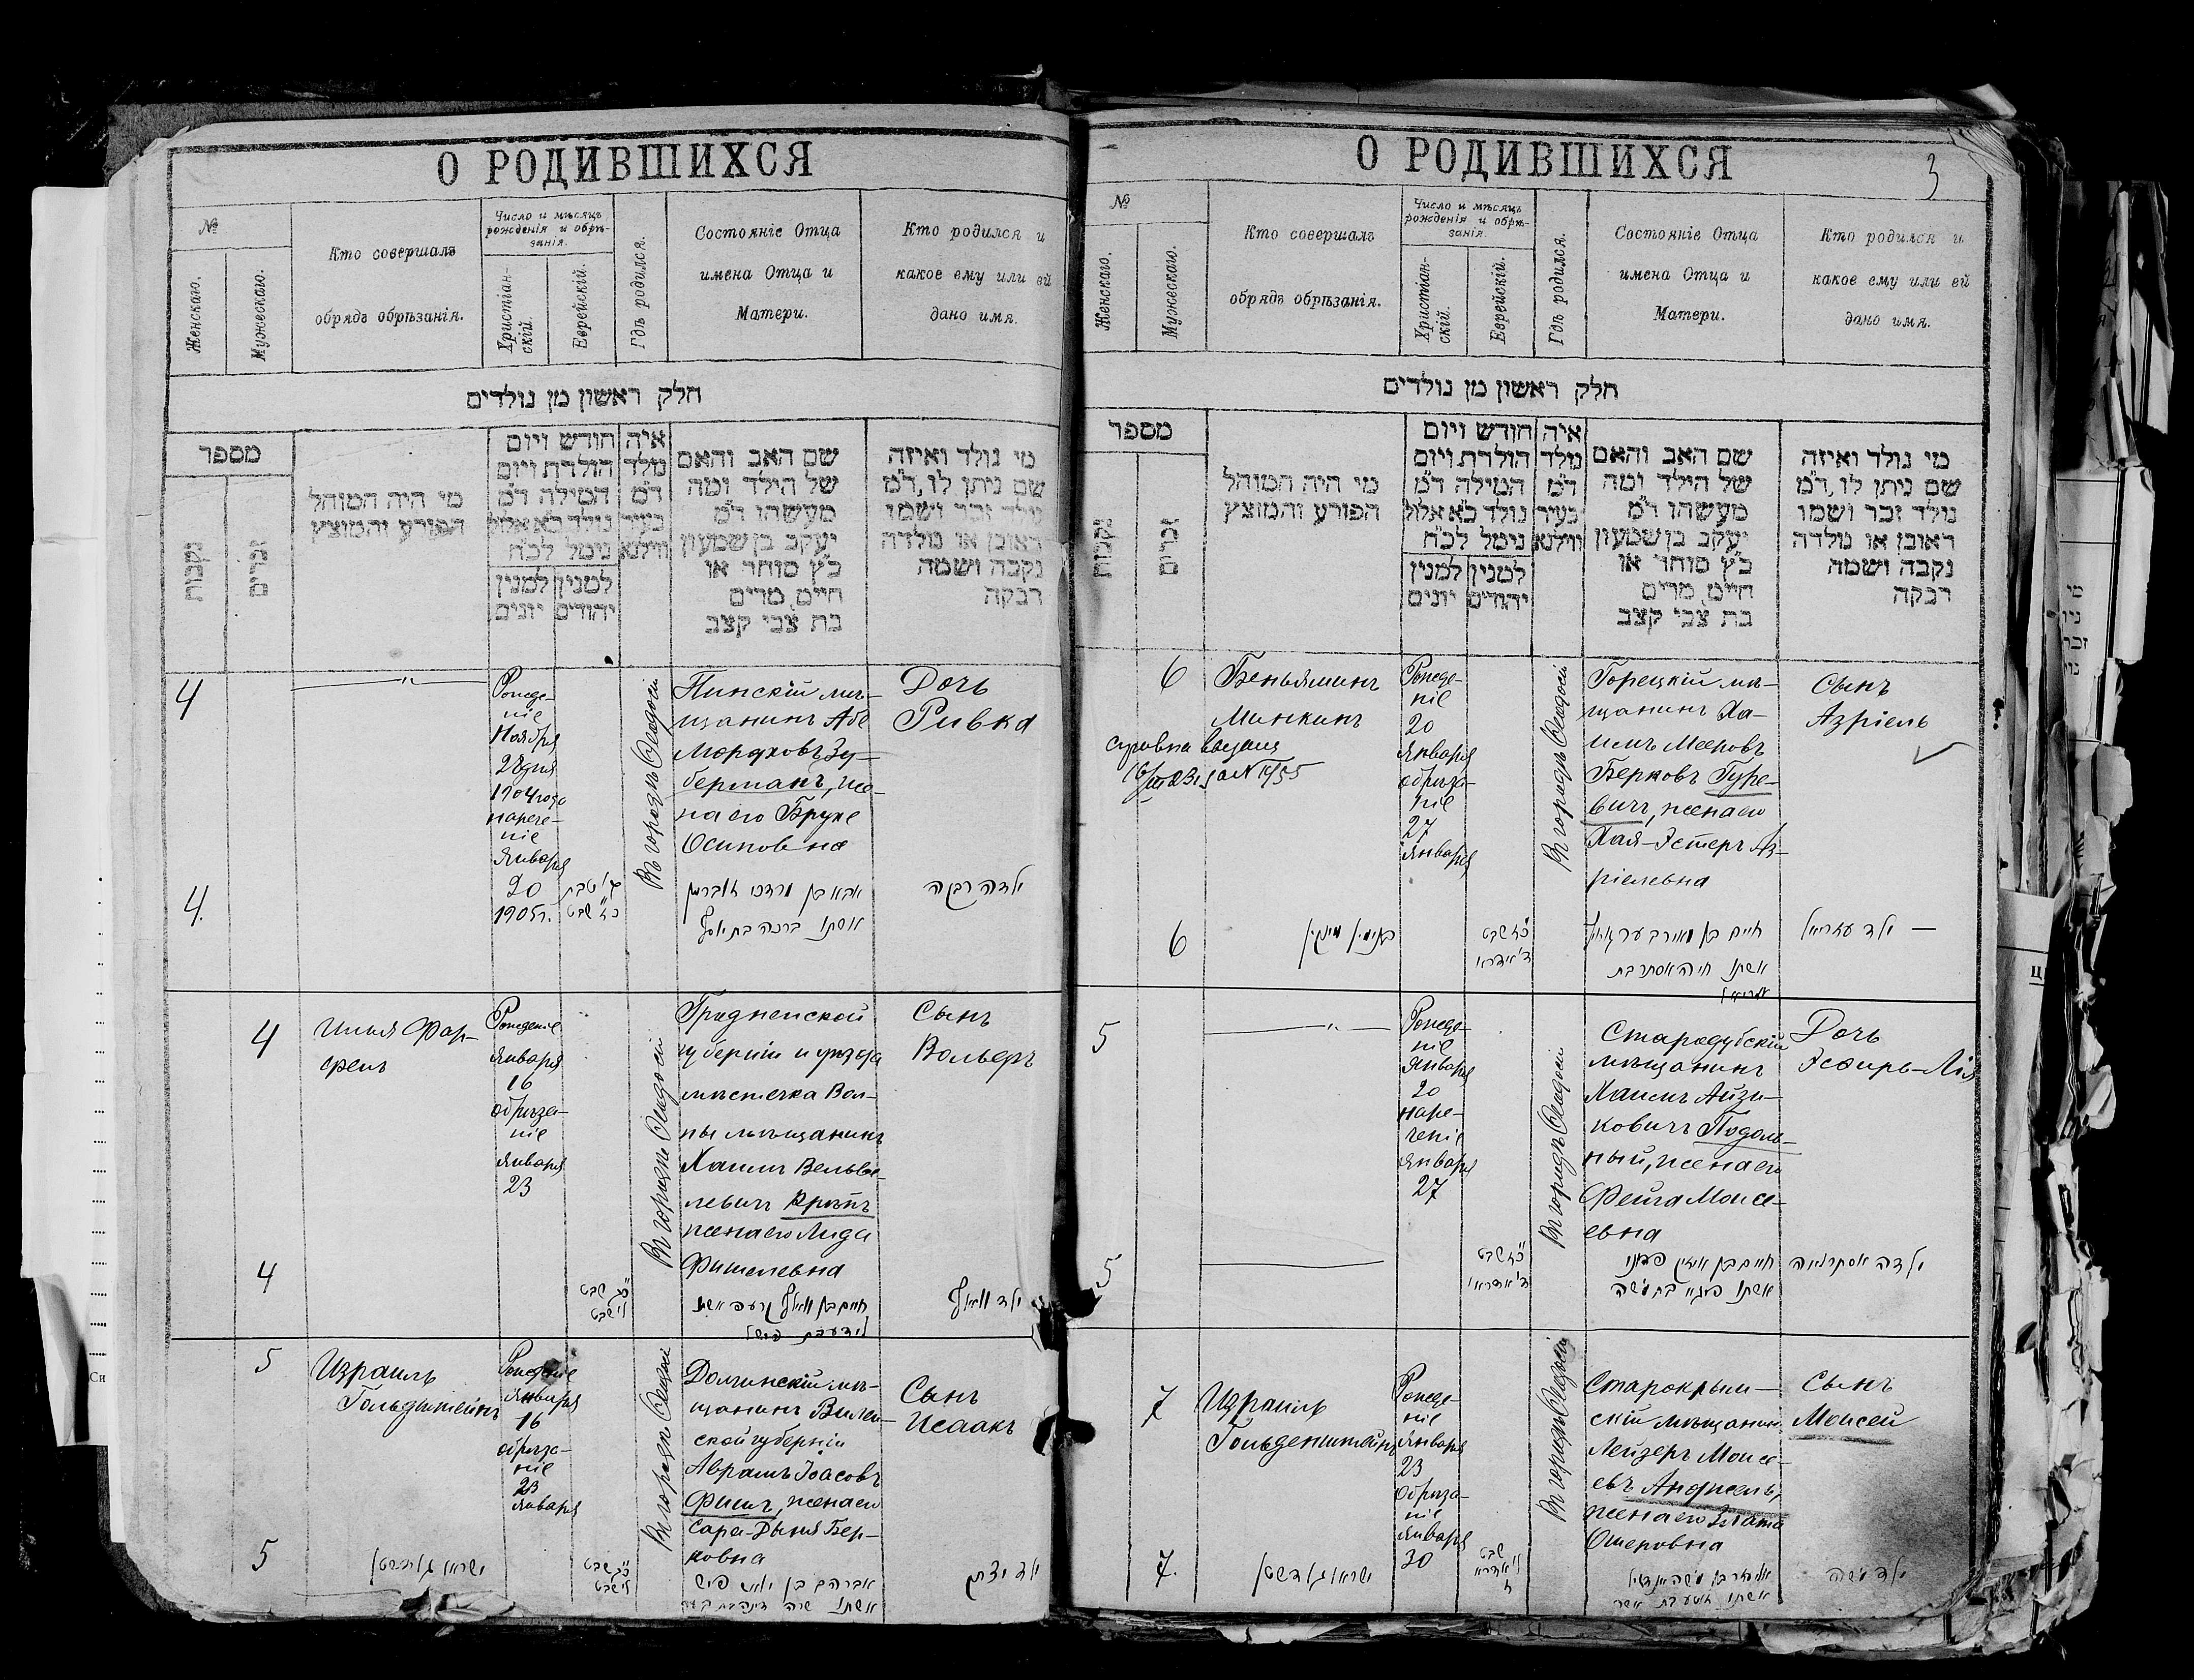 О РОДИВШИХСЯ
№
Женскаго.
Мужескаго.
Кто совершалъ
обрядъ обрѣзанія.
Число и мѣсяцъ
рожденія и обрѣ-
занія.
Христіан-
скій.
Еврейскій.
Гдѣ родился.
Состояніе Отца
имена Отца и
Матери.
Кто родился и
какое ему или ей
дано имя.
חלק ראשון מן נולדים
מספר
נקבות
זכרים
מי היה המוהל
הפורע והמוצץ
חודש ויום
הולדת ויום
המילה ד״מ
נולד כ״א אלול
נימל לכ״ח
למנין
יהודים
למנין
יונים
איה
נולד
ד״מ
בעיר
ווילנא
שם האב והאם
של הילד ומה
מעשהו ד״מ
יעקב בן שמעון
כ״ץ סוחר או
חייט, מרים
בת צבי קצב
מי נולד ואיזה
שם ניתן לו, ד״מ
נולד זכר ושמו
ראובן או נולדה
נקבה ושמה
רבקה
4
Рожде-
ніе
Ноября
1904 года
нарече-
ніе
Января
20
1905 г.
Въ городѣ Ѳеодосіи
Пинскій мѣ-
щанинъ Аба
Мордховъ Зу-
берманъ, же-
на его Бруха
Осиповна
Дочь
Ривка
4.
אבא בן מרדכי זוברמן
אשתו ברכה בת יוסף
ילדה רבקה
4
Илья Фар-
фель
Рожденіе
Января
16
обрѣза-
ніе
Января
23
Въ городѣ Ѳеодосіи
Гродненской
губерніи и уѣзда
мѣстечка Вол-
пы мѣщанинъ
Хаимъ Вельве-
левичъ
жена его Лида
Фишелевна
Сынъ
Вольфъ
4
ילד וואלף
5
Израиль
Гольденштейнъ
Рожденіе
Января
16
обрѣза-
ніе
23
Января
Въ городѣ Ѳеодосіи
Долгинскій мѣ-
щанинъ Вилен-
ской губерніи
Аврамъ Іоасовъ
Фишъ, жена его
Сара-Дыня Бер-
ковна
Сынъ
Исаакъ
5
ישראל גולדשטיין
ילד יצחק
О РОДИВШИХСЯ
3
№
Женскаго.
Мужескаго.
Кто совершалъ
обрядъ обрѣзанія.
Число и мѣсяцъ
рожденія и обрѣ-
занія.
Христіан-
скій.
Еврейскій.
Гдѣ родился.
Состояніе Отца
имена Отца и
Матери.
Кто родился и
какое ему или ей
дано имя.
חלק ראשון מן נולדים
מספר
נקבות
זכרים
מי היה המוהל
הפורע והמוצץ
חודש ויום
הולדת ויום
המילה ד״מ
נולד כ״א אלול
נימל לכ״ח
למנין
יהודים
למנין
יונים
איה
נולד
ד״מ
בעיר
ווילנא
שם האב והאם
של הילד ומה
מעשהו ד״מ
יעקב בן שמעון
כ״ץ סוחר או
חייט, מרים
בת צבי קצב
מי נולד ואיזה
שם ניתן לו, ד״מ
נולד זכר ושמו
ראובן או נולדה
נקבה ושמה
רבקה
6
Беньяминъ
Минкинъ
Рожде-
ніе
20
Января
обрѣза-
ніе
27
Января
Въ городѣ Ѳеодосіи
Горецкій мѣ-
щанинъ Ха-
имъ Мееровъ
Берковъ Гуре-
вичъ, жена его
Хая-Эстеръ Аз-
ріелевна
Сынъ
Азріель
6
בנימין מינקין
אשתו חיה אסתר בת
עזריאל
ילד עזריאל
5
Рожде-
ніе
Января
20
наре-
ченіе
Января
27
Въ городѣ Ѳеодосіи
Стародубскій
мѣщанинъ
Хаимъ Айзи-
ковичъ Подоль-
ный, жена его
Фейга Моисе-
евна
Дочь
Эсѳирь-Лія
5
אשתו פייגא בת משה
ילדה אסתר לאה
7
Израиль
Гольденштейнъ
Рожде-
ніе
Января
23
Обрѣза-
ніе
Января
30
Въ городѣ Ѳеодосіи
Старокрым-
скій мѣщанинъ
Лейзеръ Моисе-
евъ Анджель,
жена его Злата
Ошеровна
Сынъ
Моисей
7.
ישראל גולדשטיין
ילד משה